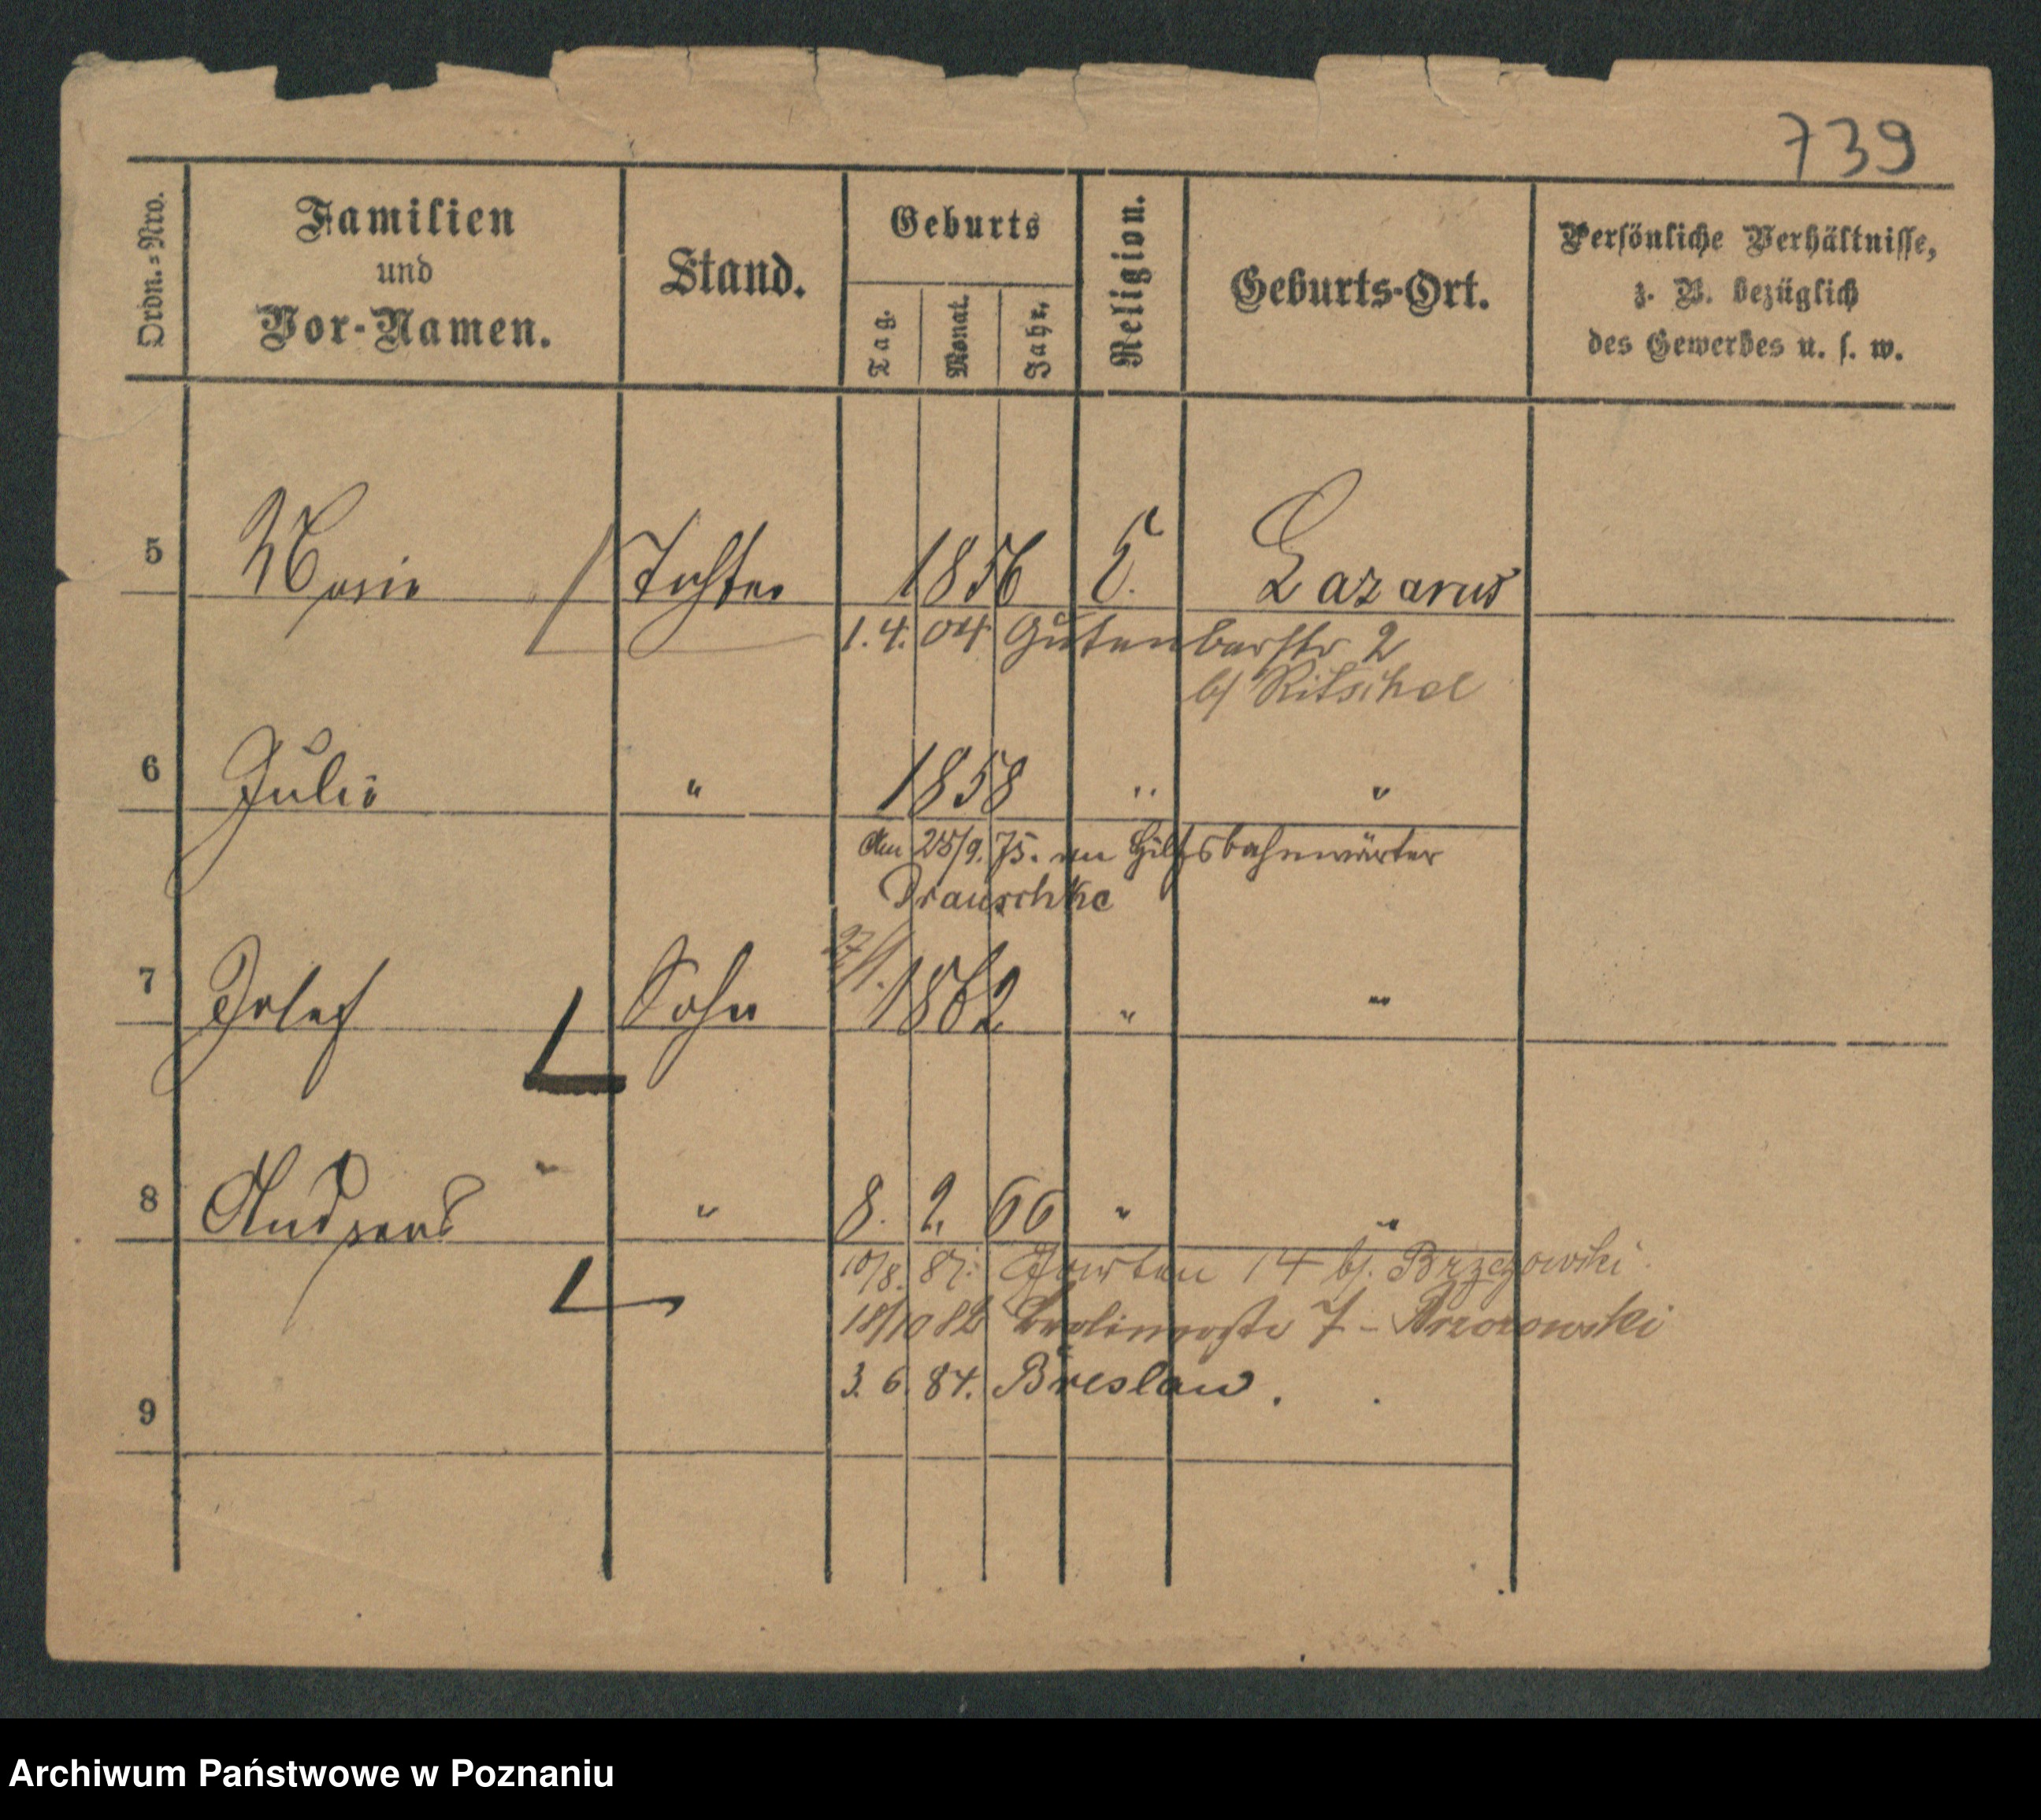 739
Ordn.=Nro.
Familien
und
Vor-Namen.
Stand.
Geburts
Tag.
Monat.
Jahr.
Religion.
Geburts-Ort.
Persönliche Verhältnisse,
z. B. bezüglich
des Gewerbes u. s. w.
5 Marie Tochter 1856 E. Lazarus
1. 4. 04 Gutenbergstr 2
b/ Ritschel
6 Julie " 1858 " "
Am 25/9. 75. an Hilfsbahnwärter
Drauschke
27/1.
7 Josef Sohn 1862 " "
8 Andreas " 8. 2. 66 " "
10/8. 81. 14 b/. Brzozowski
18/10 82 7 - Brzozowski
3. 6. 84. Breslau.
9
Archiwum Państwowe w Poznaniu